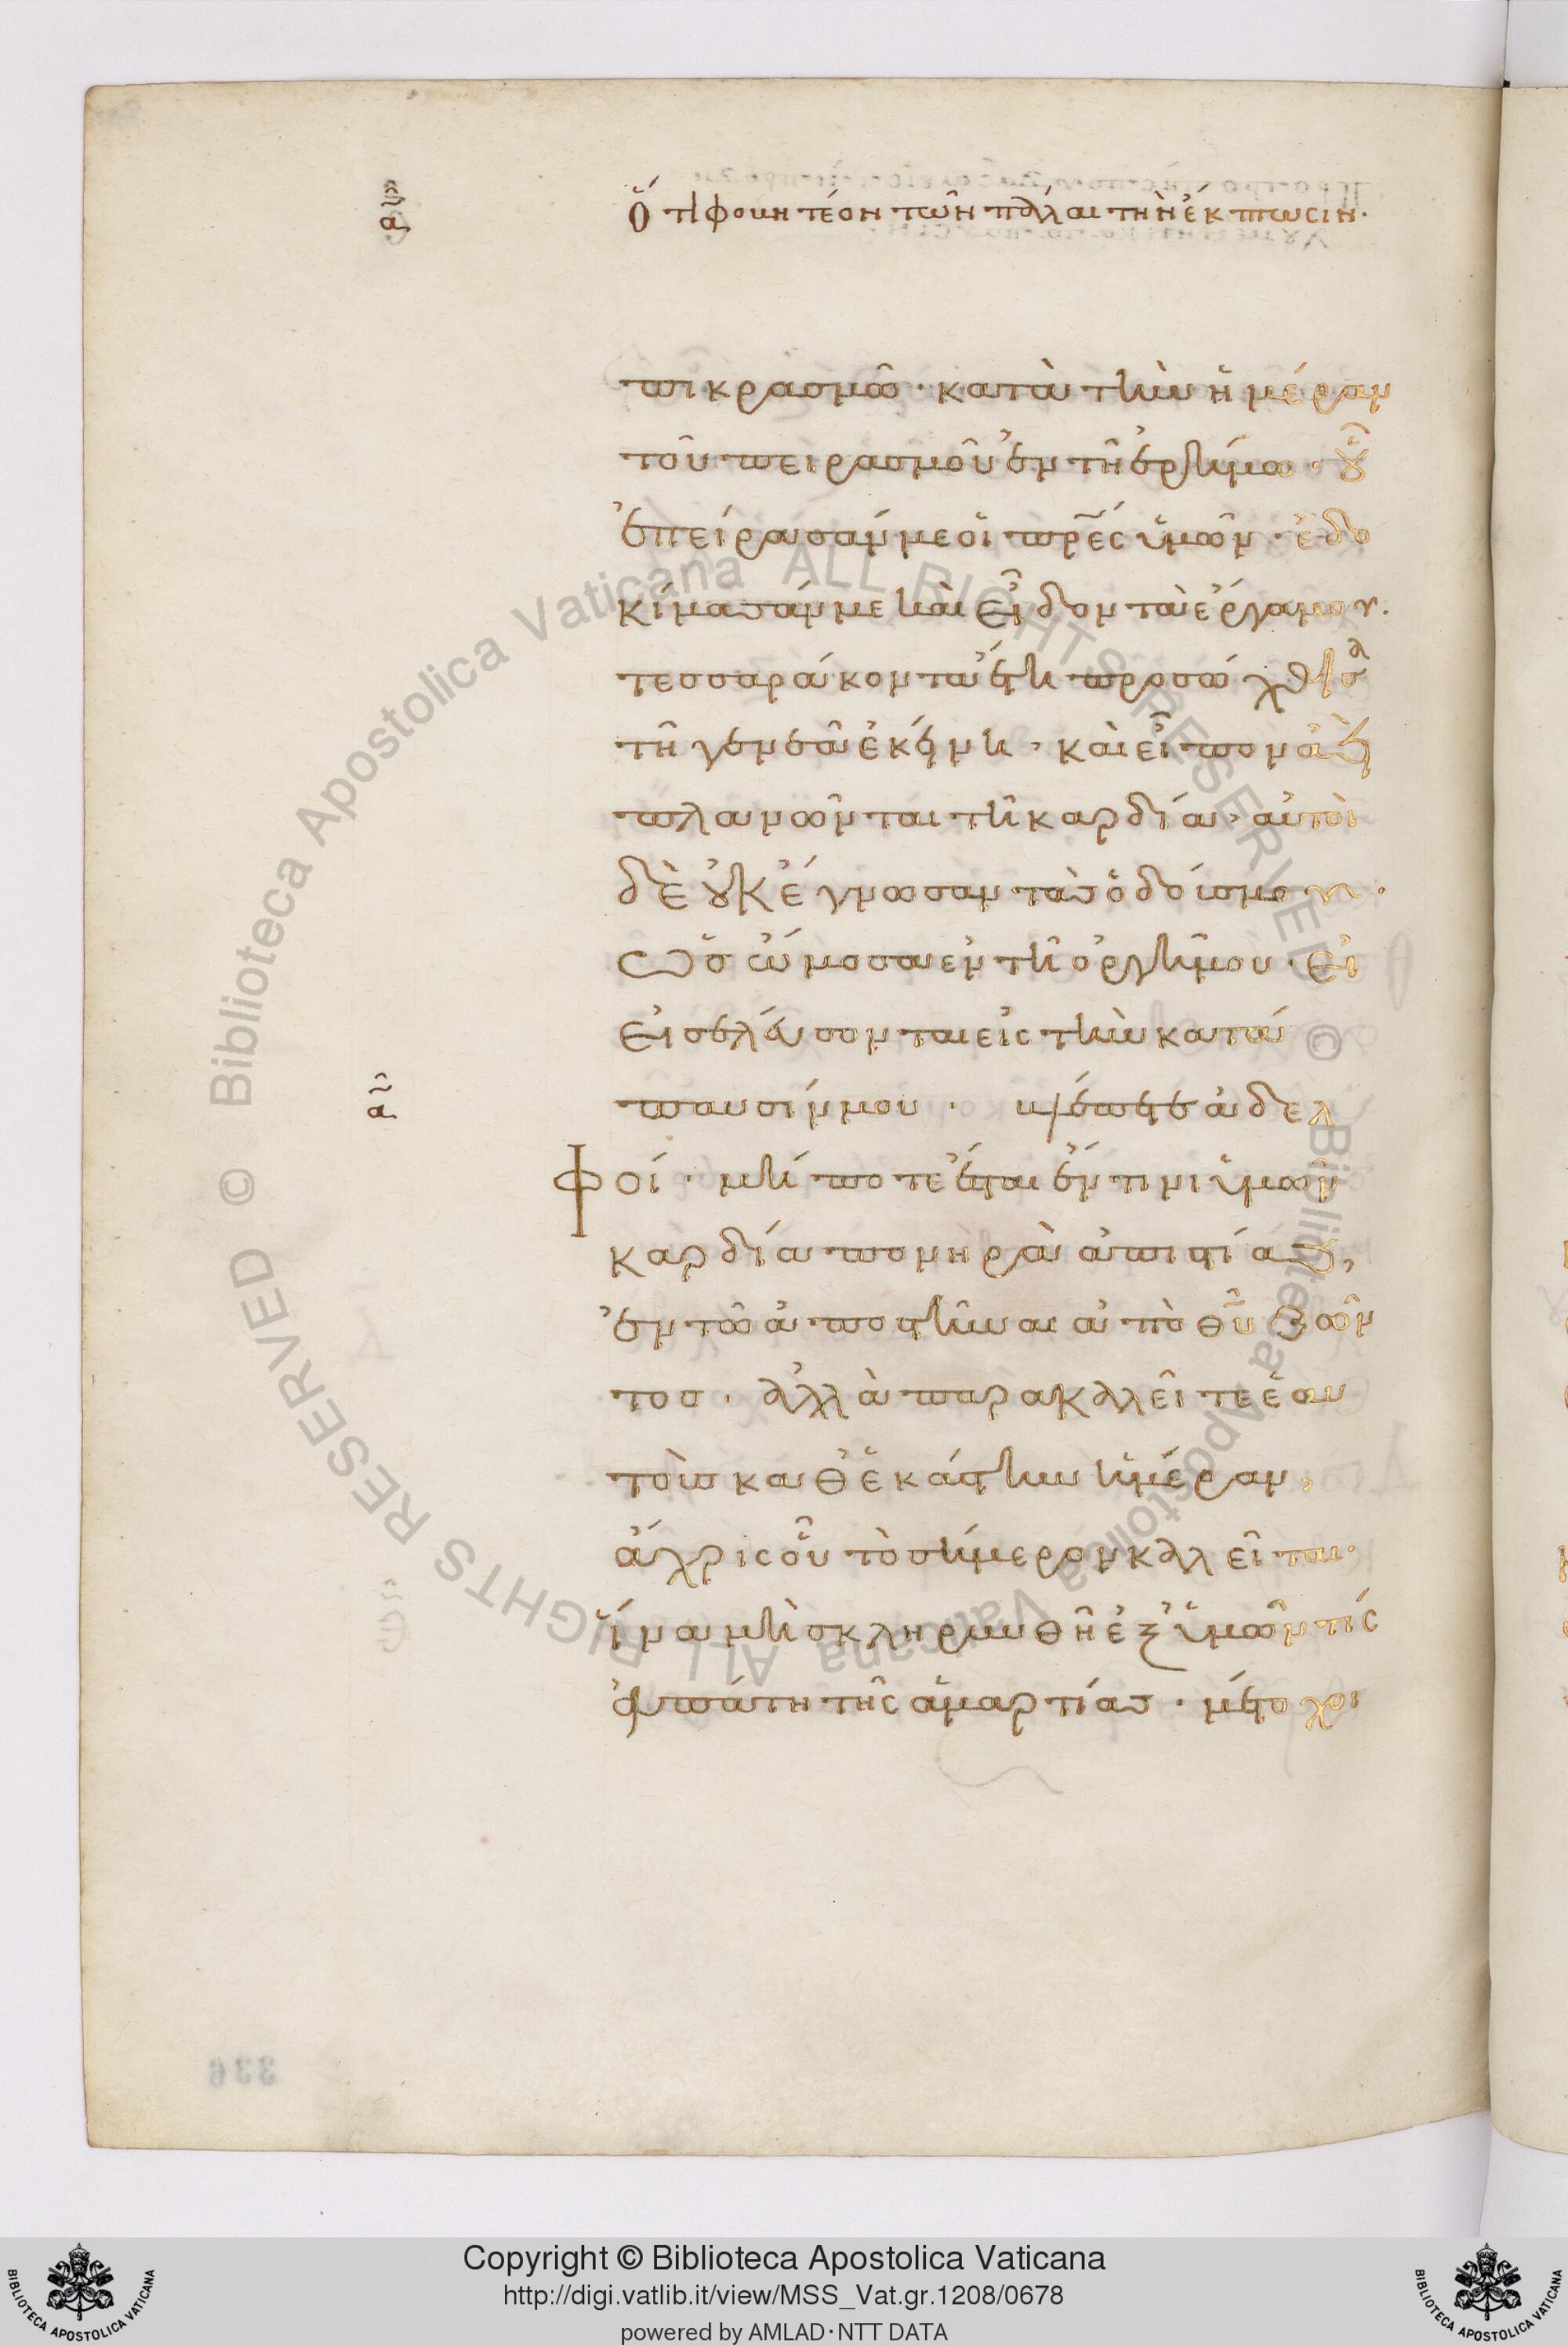 Ὅτι φοβητέον τῶν πάλαι τὴν ἔκπτωσιν·
πικρασμῶ· κατὰ τὴν ἡμέραν
τοῦ πειρασμοῦ ἐν τῆ ἐρήμω· οὗ
ἐπείρασάν με οἱ πρ̅ε̅ς ὑμῶν· ἐδο
κίμασάν με καὶ εἶδον τὰ ἔργα μου·
τεσσαράκοντα ἔτη προσώχθισα
τῆ γενεᾶ ἐκείνη· καὶ εἶπον ἀεὶ
πλανῶνται τῆ καρδία· αὐτοὶ
δὲ οὐκ ἔγνωσαν τὰς ὁδούς μου·
Ὡς ὤμοσα ἐν τῆ ὀργῆ μου· εἰ
εἰσελεύσονται εἰς τὴν κατά
παυσίν μου· βλέπετε ἀδελ
φοί· μήποτε ἔσται ἔν τινι ὑμῶν
καρδία πονηρὰ ἀπιστίας,
ἐν τῶ ἀποστῆναι ἀπὸ θ̅υ̅ ζῶν
τος· ἀλλὰ παρακαλεῖτε ἑαυ
τοὺς καθ' ἑκάστην ἡμέραν,
ἄχρις οὗ τὸ σήμερον καλεῖται·
ἵνα μὴ σκληρυνθῆ ἐξ ὑμῶν τίς
ἀπάτη τῆς ἁμαρτίας· μέτοχοι
336
Copyright © Biblioteca Apostolica Vaticana
http://digi.vatlib.it/view/MSS_Vat.gr.1208/0678
powered by AMLAD·NTT DATA
BIBLIOTECA APOSTOLICA VATICANA
BIBLIOTECA APOSTOLICA VATICANA
Biblioteca Apostolica Vaticana ALL RIGHTS RESERVED © Biblioteca Apostolica Vaticana ALL RIGHTS RESERVED ©